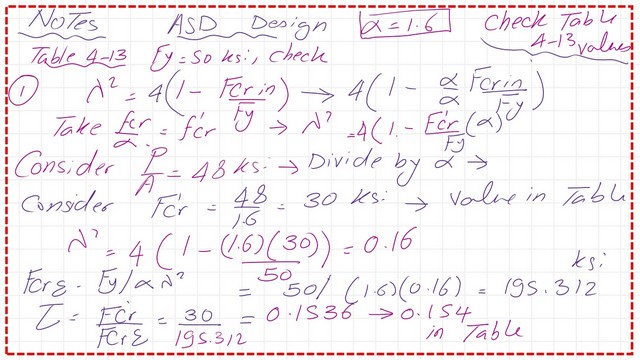 NOTES ASD Design α = 1.6 Check Table 4-13 values
Table 4-13 Fy = 50 ksi, check
① λ² = 4(1 - Fcrin/Fy) → 4(1 - α/α Fcrin/Fy)
Take fcr/α = f'cr → λ² = 4(1 - Fcr'/Fy (α))
Consider P/A = 48 ksi → Divide by α →
Consider Fcr' = 48/1.6 = 30 ksi → value in Table
λ² = 4(1 - (1.6)(30)/50) = 0.16
FcrE - Fy/αλ² = 50/(1.6)(0.16) = 195.312 ksi
τ = Fcr'/FcrE = 30/195.312 = 0.1536 → 0.154 in Table